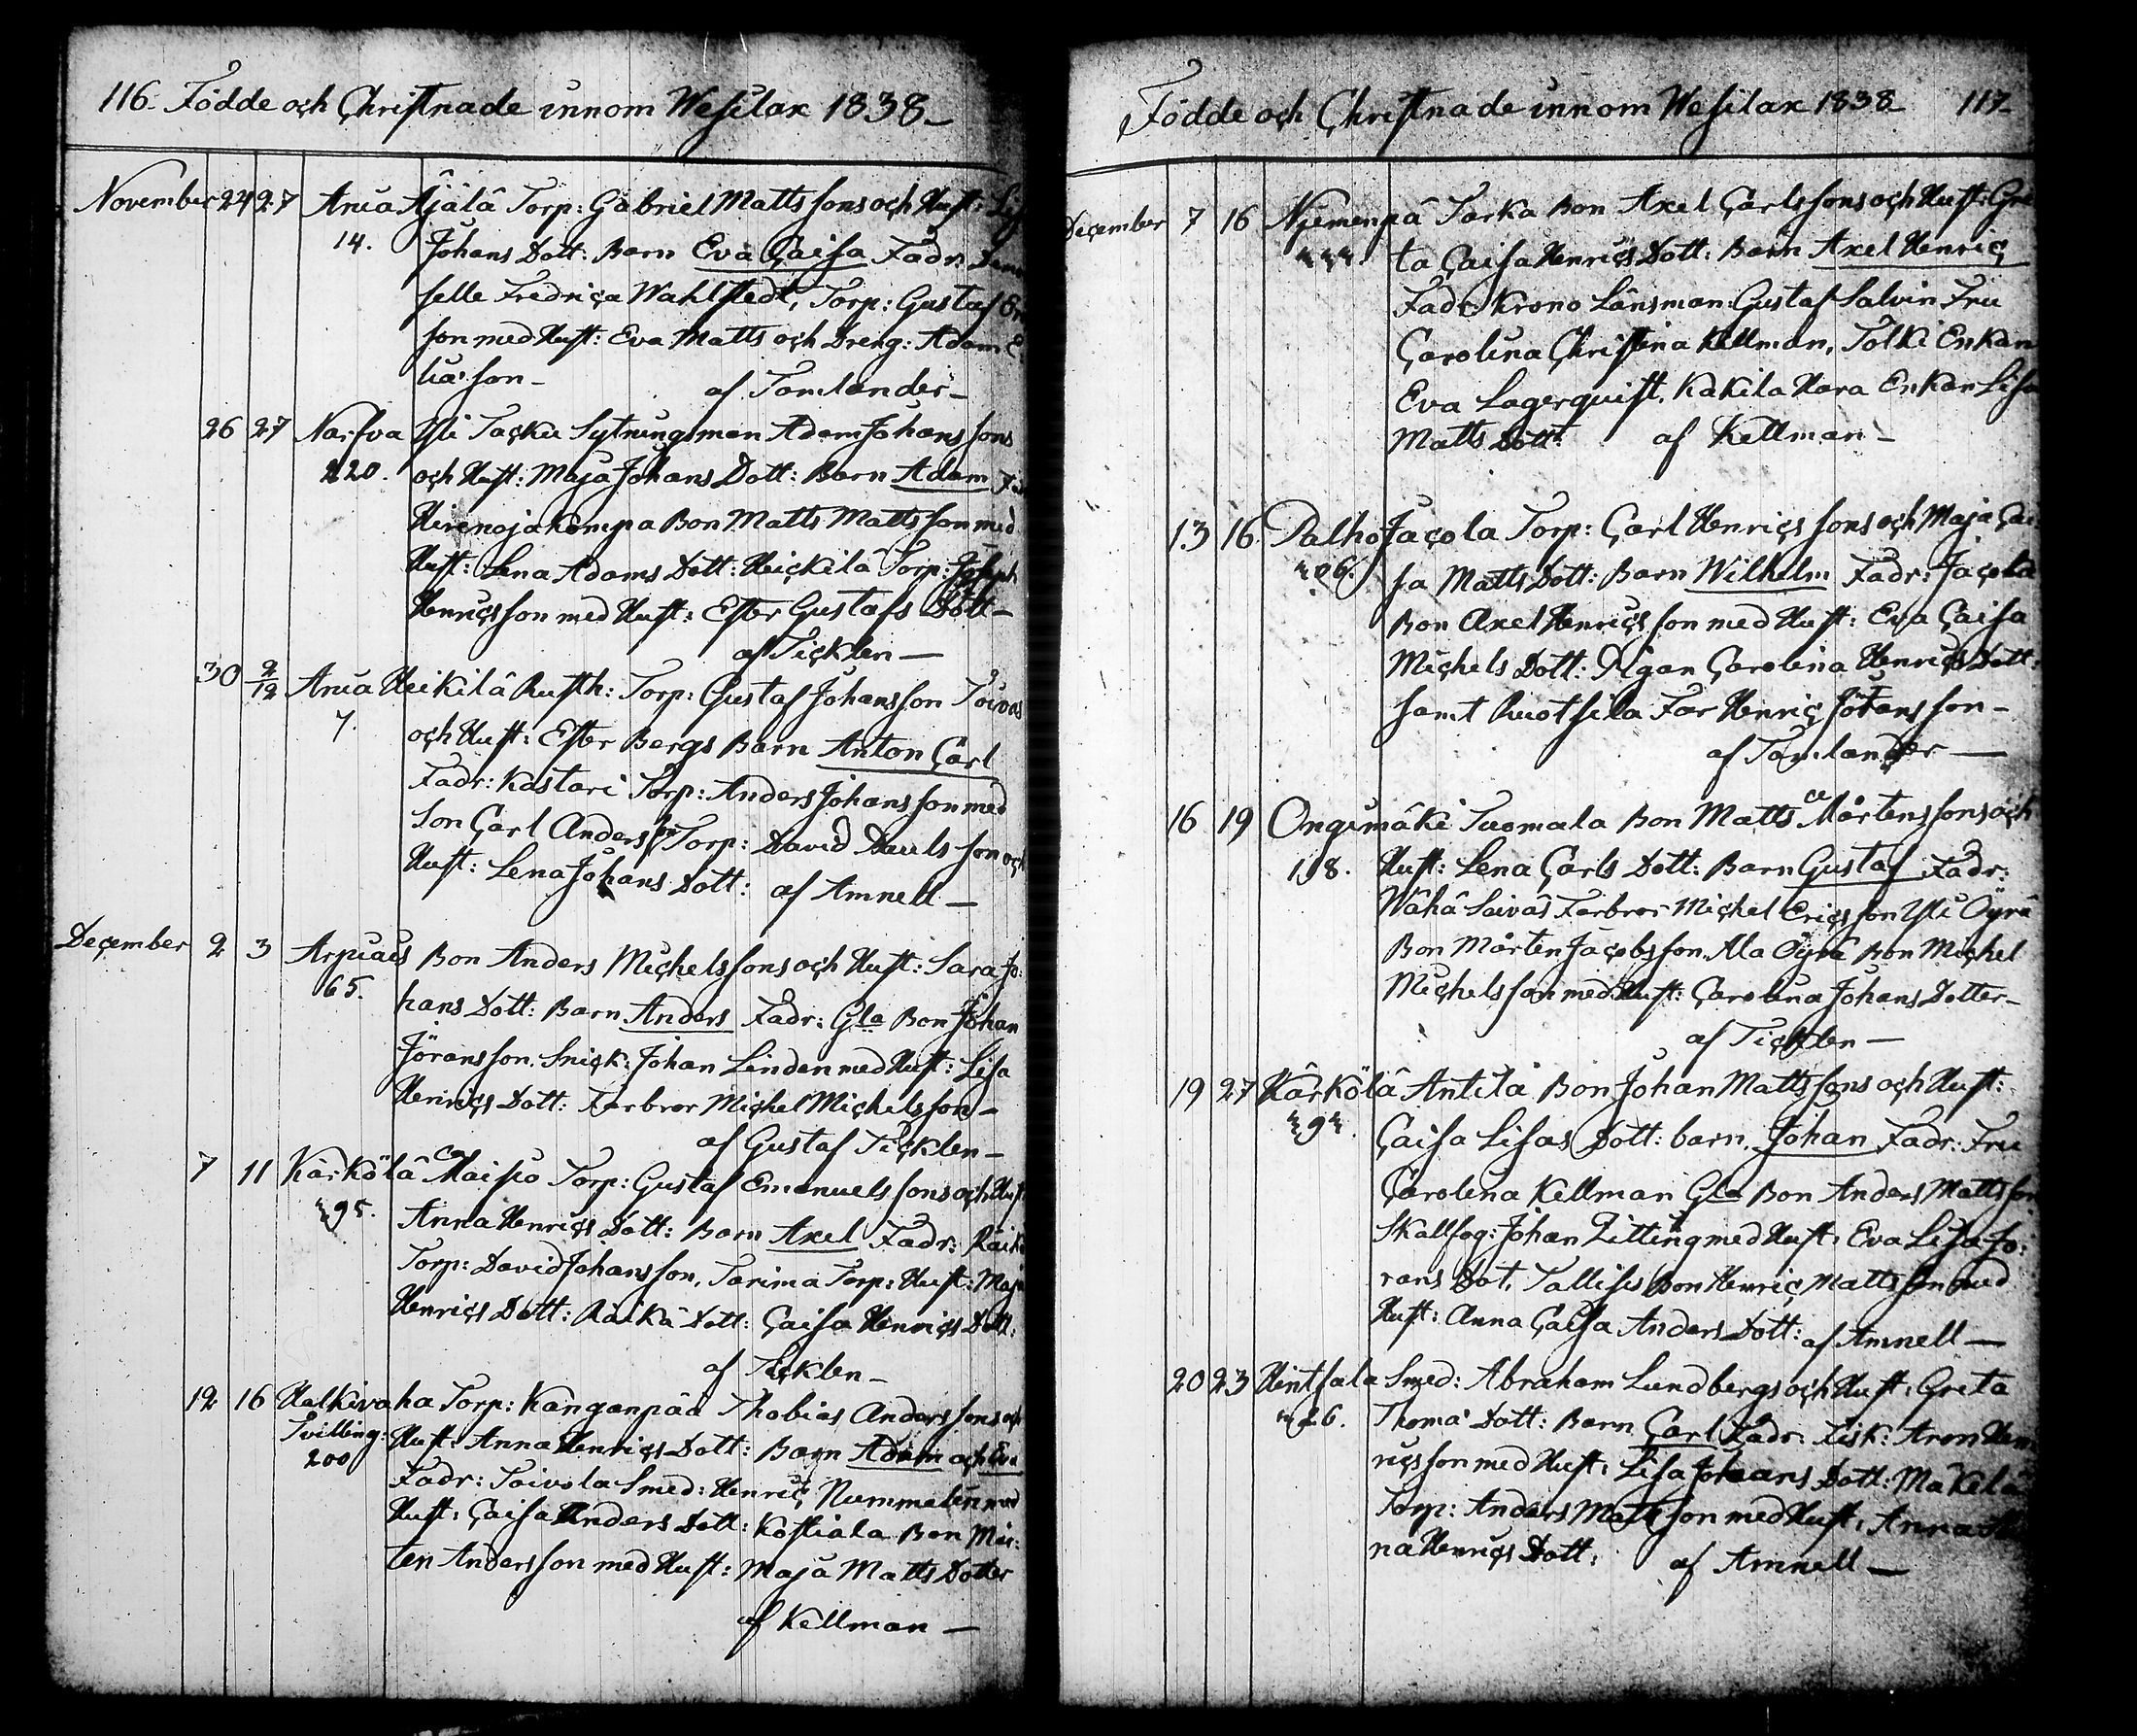 116. Födde och Christnade innom Wesilax 1838
November 24 27 Ania Äjälä Torp: Gabriel Matts sons och Hust: Lis
14. Johans Dott: Barn Eva Caisa Fadr:
selle Fredrica Wahlstedt, Torp: Gustaf
son med Hust: Eva Matts och Dreng: Adam E
liæson af Tomlander
26 27 Narfva Yli Tacku Sytningsman Adam Johans sons
220. och Hust: Maja Johans Dott: Barn Adam
Hirvnoja Kömpa Bon Matts Matts son med
Hust: Lena Adams Dott: Heickilä Torp: Joseph
Henrics son med Hust: Ester Gustafs Dott
af Ticklen
30 2/12 Ania Heikilä Rusth: Torp: Gustaf Johansson Toivos
7. och Hust: Ester Bergs Barn Anton Carl
Fadr: Kastari Torp: Anders Johans son med
Son Carl Anderss Torp: David Pauls son och
Hust: Lena Johans Dott: af Amnell
December 2 3 Arpiais Bon Anders Michels sons och Hust: Sara Jo:
65. hans Dott: Barn Anders Fadr: Gla Bon Johan
Jörans son. Snick: Johan Linden med Hust: Lisa
Henrics Dott: Farbror Michel Michels son
af Gustaf Ticklen
7 11 Kärkölä Maisio Torp: Gustaf Emanuels sons och Hust
295. Anna Henrics Dott: Barn Axel Fadr: Räikä
Torp: David Johans son, Tarima Torp: Hust: Maja
Henrics Dott: Räikä Dott: Caisa Henrics Dott:
af Ticklen
12 16 Halkivaha Torp: Kanganpää Thobias Anders sons och
Tvilling: Hust: Anna Henrics Dott: Barn Adam och Eva
200 Fadr: Toivola Smed: Henric Nummelin med
Hust: Caisa Anders Dott: Kostiala Bon Mår:
ten Andersson med Hust: Maja Matts Dotter
af Kellman
Födde och Christnade innom Wesilax 1838 117
December 7 16 Njemenpä Tarka Bon Axel Carls sons och Hust: Gre
ta Caisa Henrics Dott: Barn Axel Henric
Fadr: Krono Länsman Gustaf Salvin Fru
Carolina Christina Kellman, Tolki Enkan
Eva Lagerquist, Kakila Hara Enkan Lisa
Matts Dott: af Kellman
13 16 Palho Jacola Torp: Carl Henrics sons och Maja Cai
206. sa Matts Dott: Barn Wilhelm Fadr: Jacola
Bon Axel Henrics son med Hust: Eva Caisa
Michels Dott: Pigan Carolina Henrics Dott:
samt Ruotsila Far Henric Johans son
af Tomlander
16 19 Ongimäki Tuomala Bon Matts Mårtens sons och
118. Hust: Lena Carls Dott: Barn Gustaf Fadr:
Wähä Saivas Farbror Michel Erics son Yli Öyrä
Bon Mårten Jacobs son. Ala Öyrä Bon Michel
Michels son med Hust: Carolina Johans Dotter
af Ticklen
19 27 Kärkölä Antila Bon Johan Matts sons och Hust:
292. Caisa Lisas Dott: barn, Johan Fadr: Fru
Carolina Kellman Gla Bon Anders Matts son
Skallfog: Johan Zitting med Hust: Eva Lisa Jo:
rans Dot. Tallises Bon Henric Matts son med
Hust: Anna Caisa Anders Dott: af Amnell
20 23 Hintsala Smed: Abraham Lundbergs och Hust: Greta
226. Thomæ Dott: Barn Carl Fadr: Fisk: Aron Hen
rics son med Hust: Lisa Johans Dott: Mäkelä
Torp: Anders Matts son med Hust: Anna Sti
na Henrics Dott: af Amnell